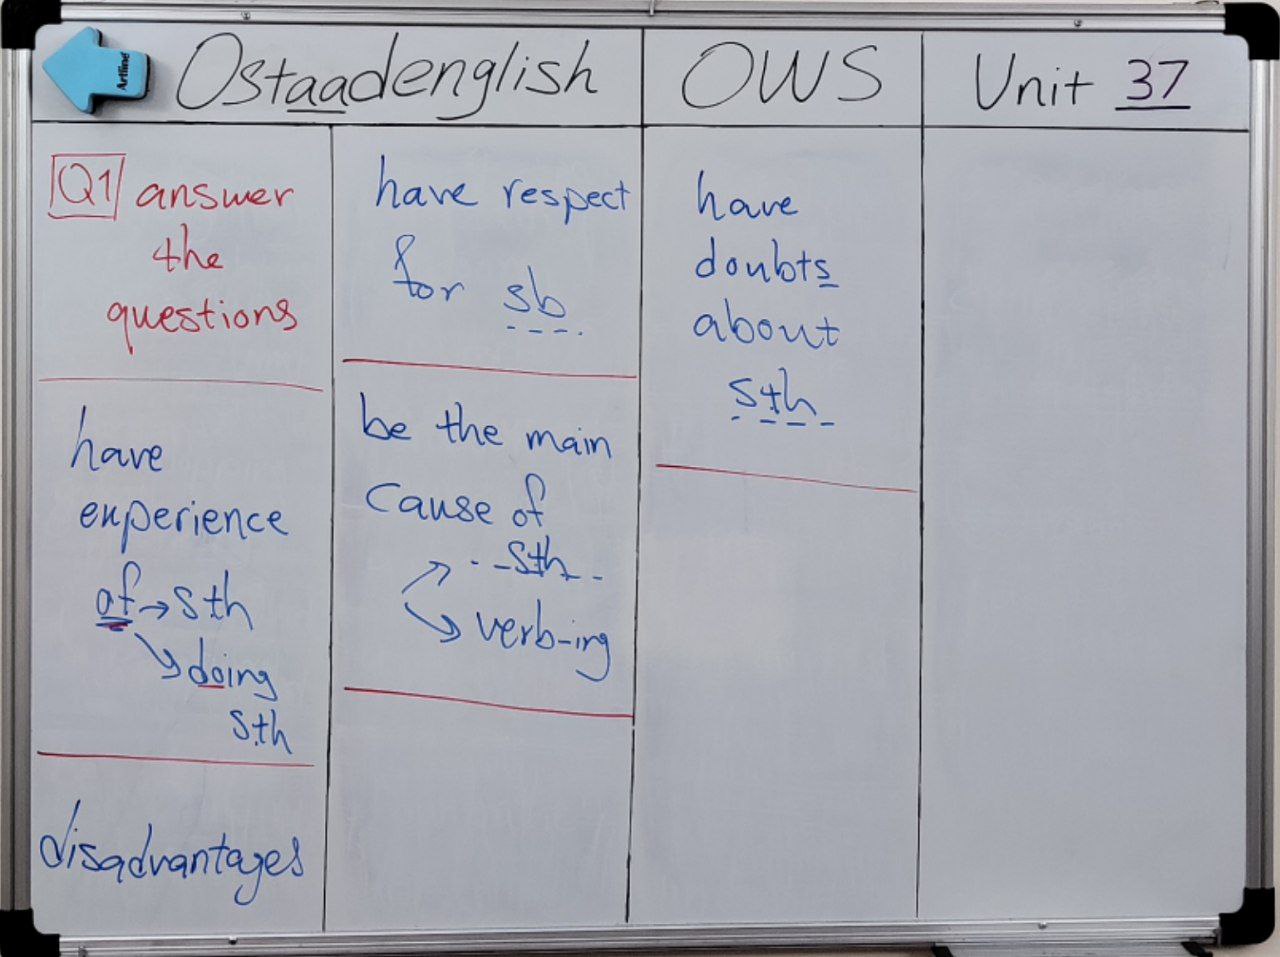 Artline
Ostaadenglish
OWS
Unit 37
Q1 answer
the
questions
have
experience
of → sth
doing
sth
disadvantages
have respect
for sb
be the main
cause of
sth
verb-ing
have
doubts
about
sth